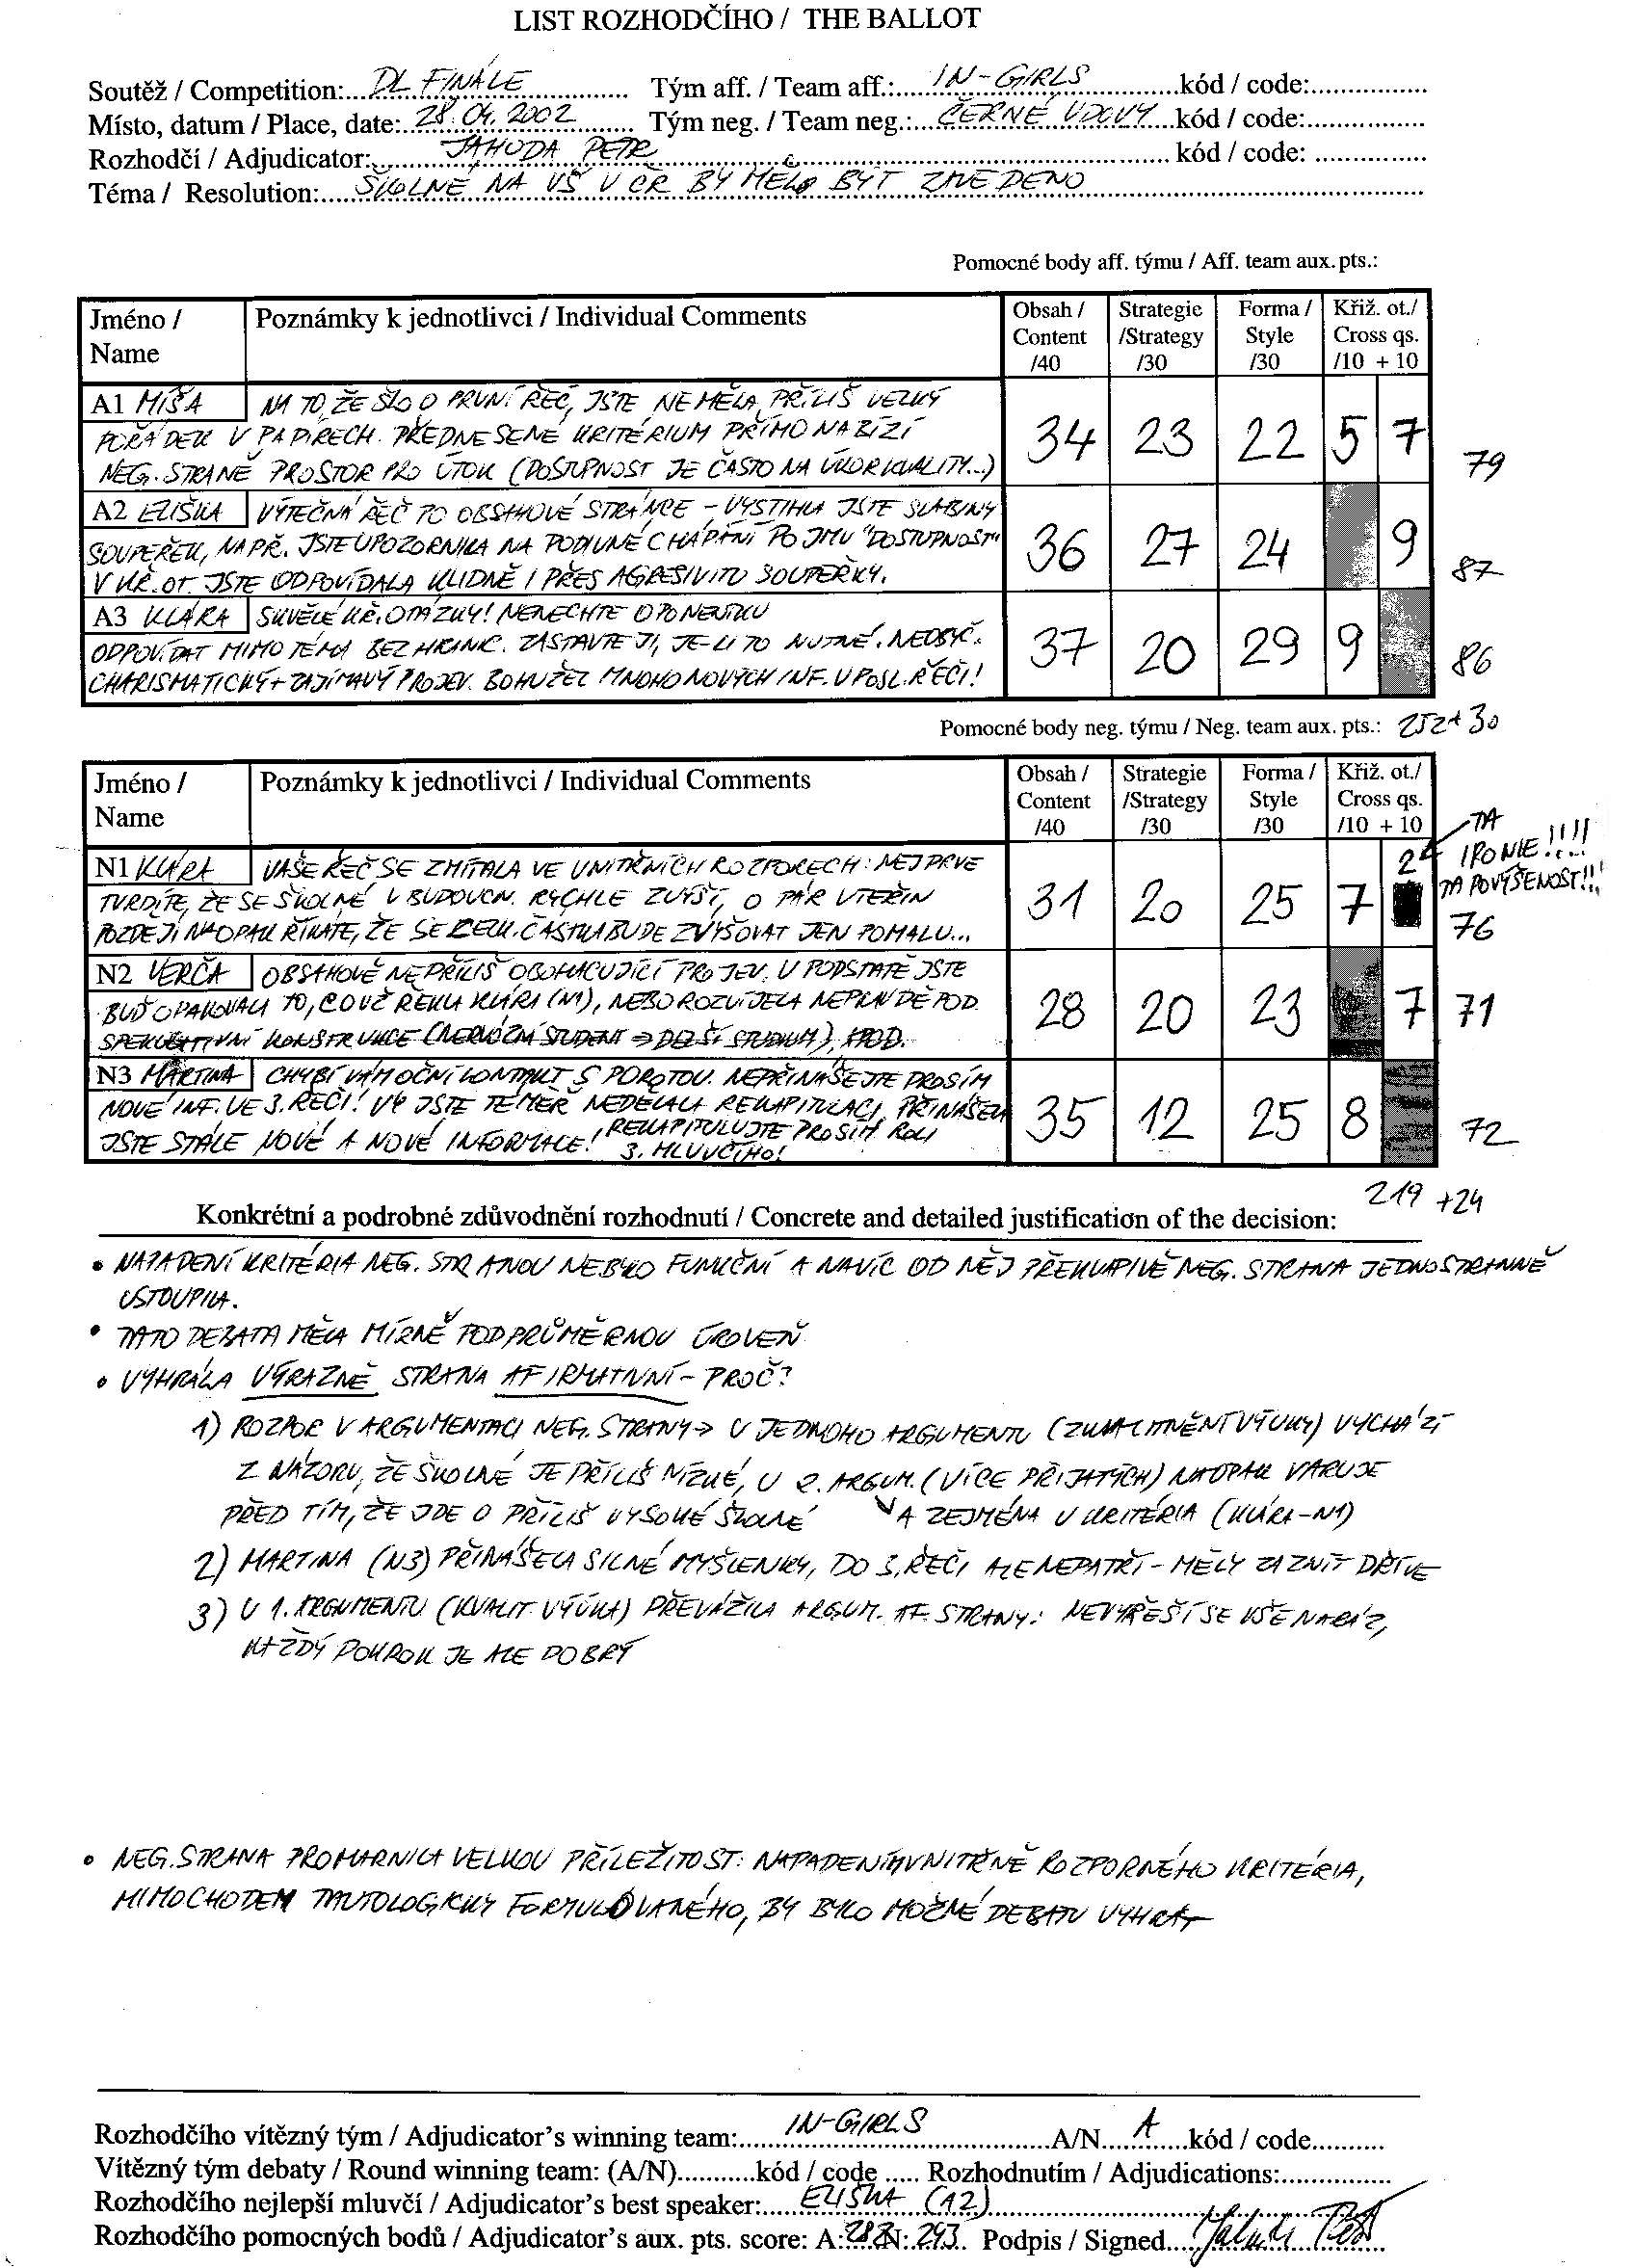 LIST ROZHODČÍHO / THE BALLOT
Soutěž / Competition:...DL FINÁLE... Tým aff. / Team aff.:...IN-GIRLS...kód / code:...
Místo, datum / Place, date:..28.04.2002... Tým neg. / Team neg.:...ČERNÉ VDOVY...kód / code:...
Rozhodčí / Adjudicator:...JAHODA PETR...kód / code: ...
Téma / Resolution:...ŠKOLNÉ NA VŠ V ČR BY MĚLO BÝT ZAVEDENO...
Pomocné body aff. týmu / Aff. team aux. pts.:
Jméno / Name Poznámky k jednotlivci / Individual Comments Obsah / Content /40 Strategie /Strategy /30 Forma / Style /30 Křiž. ot./ Cross qs. /10 + 10
A1 MÍŠA NA TO, ŽE ŠLO O PRVNÍ ŘEČ, JSTE NEMĚLA PŘÍLIŠ VELKÝ
POŘÁDEK V PAPÍRECH. PŘEDNESENÉ KRITÉRIUM PŘÍMO NABÍZÍ
NEG. STRANĚ PROSTOR PRO ÚTOK (DOSTUPNOST JE ČASTO NA ÚKOR KVALITY...)
34 23 22 5 7 79
A2 ELIŠKA VÝTEČNÁ ŘEČ PO OBSAHOVÉ STRÁNCE - VYSTIHLA JSTE SLABINY
SOUPEŘEK, NAPŘ. JSTE UPOZORNILA NA PODIVNÉ CHÁPÁNÍ POJMU "DOSTUPNOST"
V KŘ. OT. JSTE ODPOVÍDALA KLIDNĚ I PŘES AGRESIVITU SOUPEŘKY.
36 27 24 9 87
A3 KLÁRA SKVĚLÉ KŘ. OTÁZKY! NENECHTE OPONENTKU
ODPOVÍDAT MIMO TÉMA BEZ HRANIC. ZASTAVTE JI, JE-LI TO NUTNÉ. NEOBYČ.
CHARISMATICKÝ + ZAJÍMAVÝ PROJEV. BOHUŽEL MNOHO NOVÝCH INF. V POSL. ŘEČI!
37 20 29 9 86
Pomocné body neg. týmu / Neg. team aux. pts.: 252+30
Jméno / Name Poznámky k jednotlivci / Individual Comments Obsah / Content /40 Strategie /Strategy /30 Forma / Style /30 Křiž. ot./ Cross qs. /10 + 10
TA IRONIE!!!!
TA POVÝŠENOST!!!
N1 KLÁRA VAŠE ŘEČ SE ZMÍTALA VE VNITŘNÍCH ROZPORECH: NEJPRVE
TVRDÍTE, ŽE SE ŠKOLNÉ V BUDOUCN. RYCHLE ZVÝŠÍ, O PÁR VTEŘIN
POZDĚJI NAOPAK ŘÍKÁTE, ŽE SE ČÁSTKA BUDE ZVYŠOVAT JEN POMALU...
31 20 25 7 2 76
N2 VERČA OBSAHOVĚ NEPŘÍLIŠ OBOHACUJÍCÍ PROJEV. V PODSTATĚ JSTE
BUĎ OPAKOVALA TO, CO UŽ ŘEKLA KLÁRA (N1), NEBO ROZVÍJELA NEPRAVDĚPOD.
SPEKULATIVNÍ KONSTRUKCE (NERVÓZNÍ STUDENT ⇒ DELŠÍ STUDIUM), APOD.
28 20 23 7 71
N3 MARTINA CHYBÍ VÁM OČNÍ KONTAKT S POROTOU. NEPŘINÁŠEJTE PROSÍM
NOVÉ INF. VE 3. ŘEČI! VY JSTE TÉMĚŘ NEDĚLALA REKAPITULACI, PŘINÁŠELA
JSTE STÁLE NOVÉ A NOVÉ INFORMACE! REKAPITULUJTE PROSÍM ROLI
3. MLUVČÍHO!
35 12 25 8 72
219 +24
Konkrétní a podrobné zdůvodnění rozhodnutí / Concrete and detailed justification of the decision:
• NAPADENÍ KRITÉRIA NEG. STRANOU NEBYLO FUNKČNÍ A NAVÍC OD NĚJ PŘEKVAPIVĚ NEG. STRANA JEDNOSTRANNĚ
USTOUPILA.
• TATO DEBATA MĚLA MÍRNĚ PODPRŮMĚRNOU ÚROVEŇ
• VYHRÁLA VÝRAZNĚ STRANA AFIRMATIVNÍ - PROČ?
1) ROZPOR V ARGUMENTACI NEG. STRANY → U JEDNOHO ARGUMENTU (ZKVALITNĚNÍ VÝUKY) VYCHÁZÍ
Z NÁZORU, ŽE ŠKOLNÉ JE PŘÍLIŠ NÍZKÉ, U 2. ARGUM. (VÍCE PŘIJATÝCH) NAOPAK VARUJE
PŘED TÍM, ŽE JDE O PŘÍLIŠ VYSOKÉ ŠKOLNÉ A ZEJMÉNA U KRITÉRIA (KLÁRA-N1)
2) MARTINA (N3) PŘINÁŠELA SILNÉ MYŠLENKY, DO 3. ŘEČI ALE NEPATŘÍ - MĚLY ZAZNÍT DŘÍVE
3) U 1. ARGUMENTU (KVALIT. VÝUKA) PŘEVÁŽILA ARGUM. AF. STRANY: NEVYŘEŠÍ SE VŠE NARÁZ,
KAŽDÝ POKROK JE ALE DOBRÝ
• NEG. STRANA PROMARNILA VELKOU PŘÍLEŽITOST: NAPADENÍM VNITŘNĚ ROZPORNÉHO KRITÉRIA,
MIMOCHODEM TAUTOLOGICKY FORMULOVANÉHO, BY BYLO MOŽNÉ DEBATU VYHRÁT
Rozhodčího vítězný tým / Adjudicator's winning team:...IN-GIRLS...A/N...A...kód / code...
Vítězný tým debaty / Round winning team: (A/N)...kód / code ..... Rozhodnutím / Adjudications:...
Rozhodčího nejlepší mluvčí / Adjudicator's best speaker:...ELIŠKA (A2)...
Rozhodčího pomocných bodů / Adjudicator's aux. pts. score: A:282 N:243 Podpis / Signed...